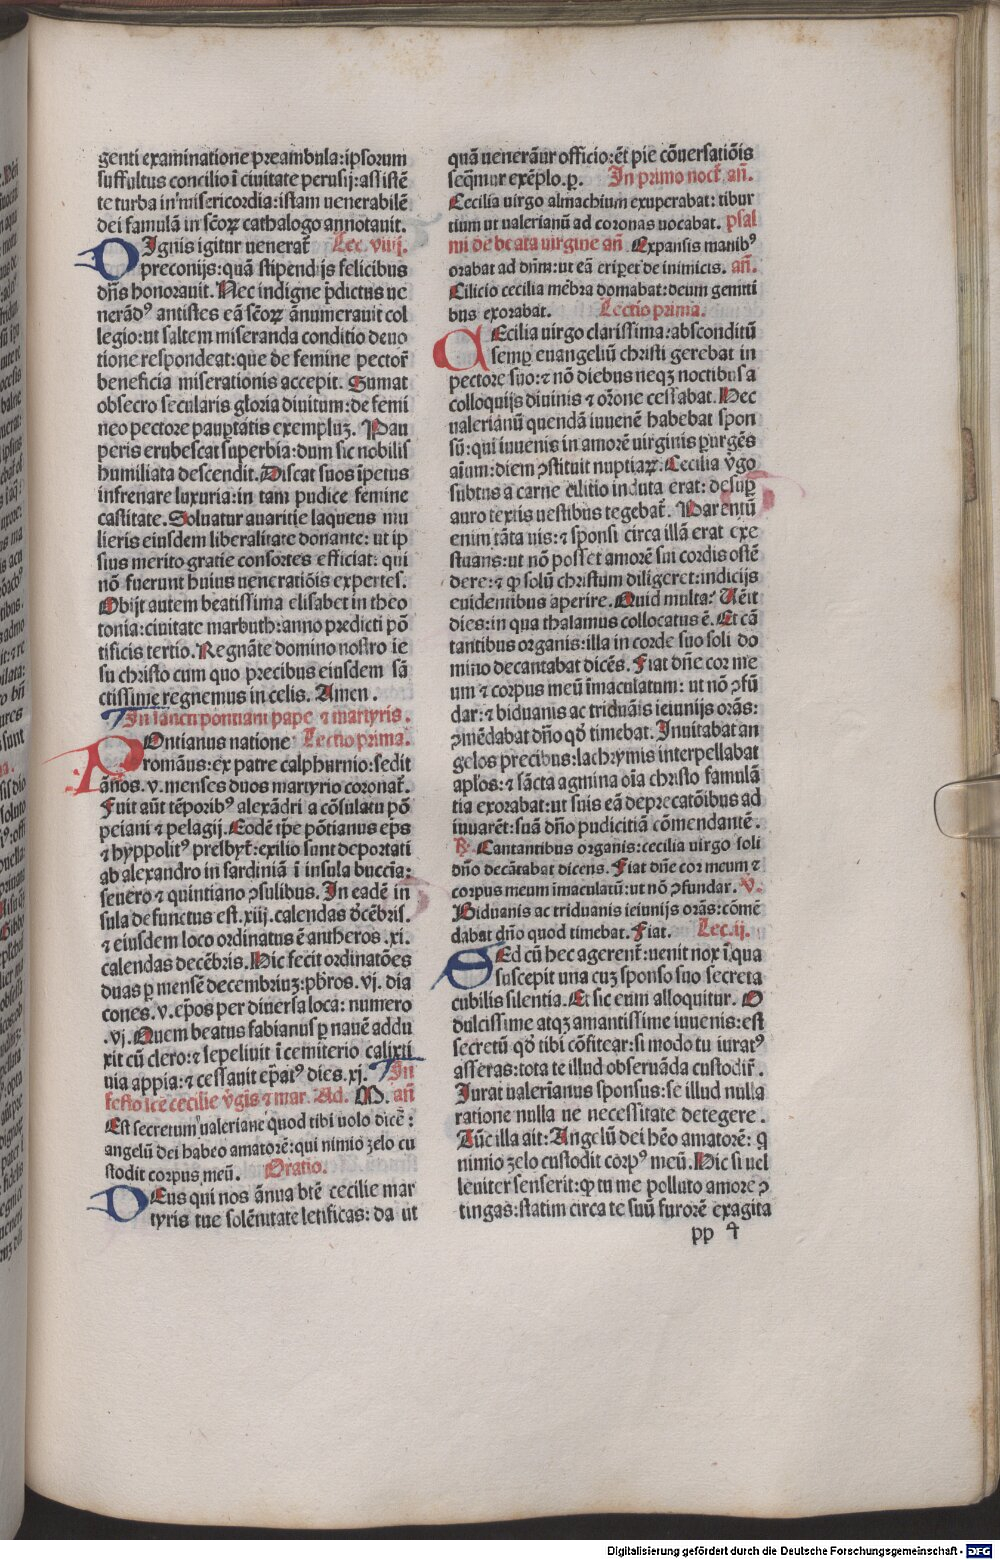 genti examinatione preambula:ipsorum
suffultus concilio ī ciuitate perusij:astistē
te turba in misericordia:istam uenerabilē
dei famulā in sc̄oꝝ cathalogo annotauit.
DIgnis igitur uenerat̄ Lec. viij.
preconijs:quā stipendijs felicibus
dn̄s honorauit. Nec indigne p̄dictus ue
nerādꝰ antistes eā sc̄oꝝ ānumerauit col
legio:ut saltem miseranda conditio deuo
tione respondeat:que de femine pector̄
beneficia miserationis accepit. Sumat
obsecro secularis gloria diuitum:de femi
neo pectore paup̄tatis exempluꝫ. Pau
peris erubescat superbia:dum sic nobilis
humiliata descendit. Discat suos īpetus
infrenare luxuria:in tam pudice femine
castitate. Soluatur auaritie laqueus mu
lieris eiusdem liberalitate donante: ut ip
sius merito gratie consortes efficiat: qui
nō fuerunt huius ueneratiōis expertes.
Obijt autem beatissima elisabet in theo
tonia:ciuitate marbuth:anno predicti pō
tificis tertio. Regnāte domino nostro ie
su christo cum quo precibus eiusdem sā
ctissime regnemus in celis. Amen.
In sancti pontiani pape ⁊ martyris.
POntianus natione Lectio prima.
romāus:ex patre calphurnio:sedit
ānos. v. menses duos martyrio coronat̄.
Fuit aūt tēporibꝰ alexādri a cōsulatu pō
peiani ⁊ pelagij. Eodē ip̄e pōtianus ep̄s
⁊ hyppolitꝰ presbyt̄:exilio sunt deportati
ab alexandro in sardiniā ī insula buccīa:
seuero ⁊ quintiano ꝯsulibus. In eadē in
sula defunctus est. xiij. calendas dēcēbris.
⁊ eiusdem loco ordinatus ē antheros .xi.
calendas decēbris. Hic fecit ordinatōes
duas p mensē decembriuꝫ:pb̄ros. vj. dia
cones. v. ep̄os per diuersa loca: numero
.vj. Quem beatus fabianus p nauē addu
xit cū clero:⁊ sepeliuit ī cemiterio calixti
uia appia:⁊ cessauit ep̄atꝰ dies. xj. In
festo scē cecilie v̄gīs ⁊ mar. Ad. M. an̄
Est secretum ualeriane quod tibi uolo dicē:
angelū dei habeo amatorē:qui nimio zelo cu
stodit corpus meū. Oratio.
DEus qui nos ānua btē cecilie mar
tyris tue solēnitate letificas: da ut
quā uenerāur officio:ēt pie cōuersatiōis
seq̄mur exēplo.p. In primo noct̄. an̄.
Cecilia uirgo almachium exuperabat: tibur
tium ut ualerianū ad coronas uocabat. psal
mi de beata uirgine an̄. Expansis manibꝰ
orabat ad dn̄m:ut eā erip̄et de inimicis. an̄.
Cilicio cecilia mēbra domabat:deum gemiti
bus exorabat. Lectio prima.
CEcilia uirgo clarissima:absconditū
semp̱ euangeliū christi gerebat in
pectore suo:⁊ nō diebus neqꝫ noctibus a
colloquijs diuinis ⁊ or̄one cessabat. Hec
ualerianū quendā iuuenē habebat spon
sū:qui iuuenis in amorē uirginis purgēs
aīum:diem ꝯstituit nuptiaꝝ. Cecilia v̄go
subtus a carne cilitio induta erat: desup̱
auro textis uestibus tegebat̄. Parentū
enim tāta uis:⁊ sponsi circa illā erat exe
stuans:ut nō posset amorē sui cordis ostē
dere:⁊ ꝙ solū christum diligeret:indicijs
euidentibus aperire. Quid multa? Uēit
dies:in qua thalamus collocatus ē. Et cā
tantibus organis:illa in corde suo soli do
mino decantabat dicēs. Fiat dn̄e cor me
um ⁊ corpus meū īmaculatum: ut nō ꝯfū
dar:⁊ biduanis ac triduāis ieiunijs orās:
ꝯmēdabat dn̄o qđ timebat. Inuitabat an
gelos precibus:lachrymis interpellabat
ap̄los:⁊ sācta agmina oīa christo famulā
tia exorabat:ut suis eā deprecatōibus ad
iuuarēt:suā dn̄o pudicitiā cōmendantē.
℟. Cantantibus organis:cecilia uirgo soli
dn̄o decātabat dicens. Fiat dn̄e cor meum ⁊
corpus meum īmaculatū:ut nō ꝯfundar. v.
Biduanis ac triduanis ieiunijs orās:cōmē
dabat dn̄o quod timebat. Fiat. Lec.ij.
SEd cū hec agerent̄:uenit nox ī qua
suscepit una cuꝫ sponso suo secreta
cubilis silentia. Et sic eum alloquitur. O
dulcissime atqꝫ amantissime iuuenis:est
secretū qđ tibi cōfitear:si modo tu iuratꝰ
asseras:tota te illud obseruāda custodir̄.
Iurat ualerianus sponsus:se illud nulla
ratione nulla ue necessitate detegere.
Tūc illa ait: Angelū dei hēo amatorē: q
nimio zelo custodit corpꝰ meū. Hic si uel
leniter senserit:ꝙ tu me polluto amore ꝯ
tingas:statim circa te suū furorē exagita
pp 4
Digitalisierung gefördert durch die Deutsche Forschungsgemeinschaft - DFG